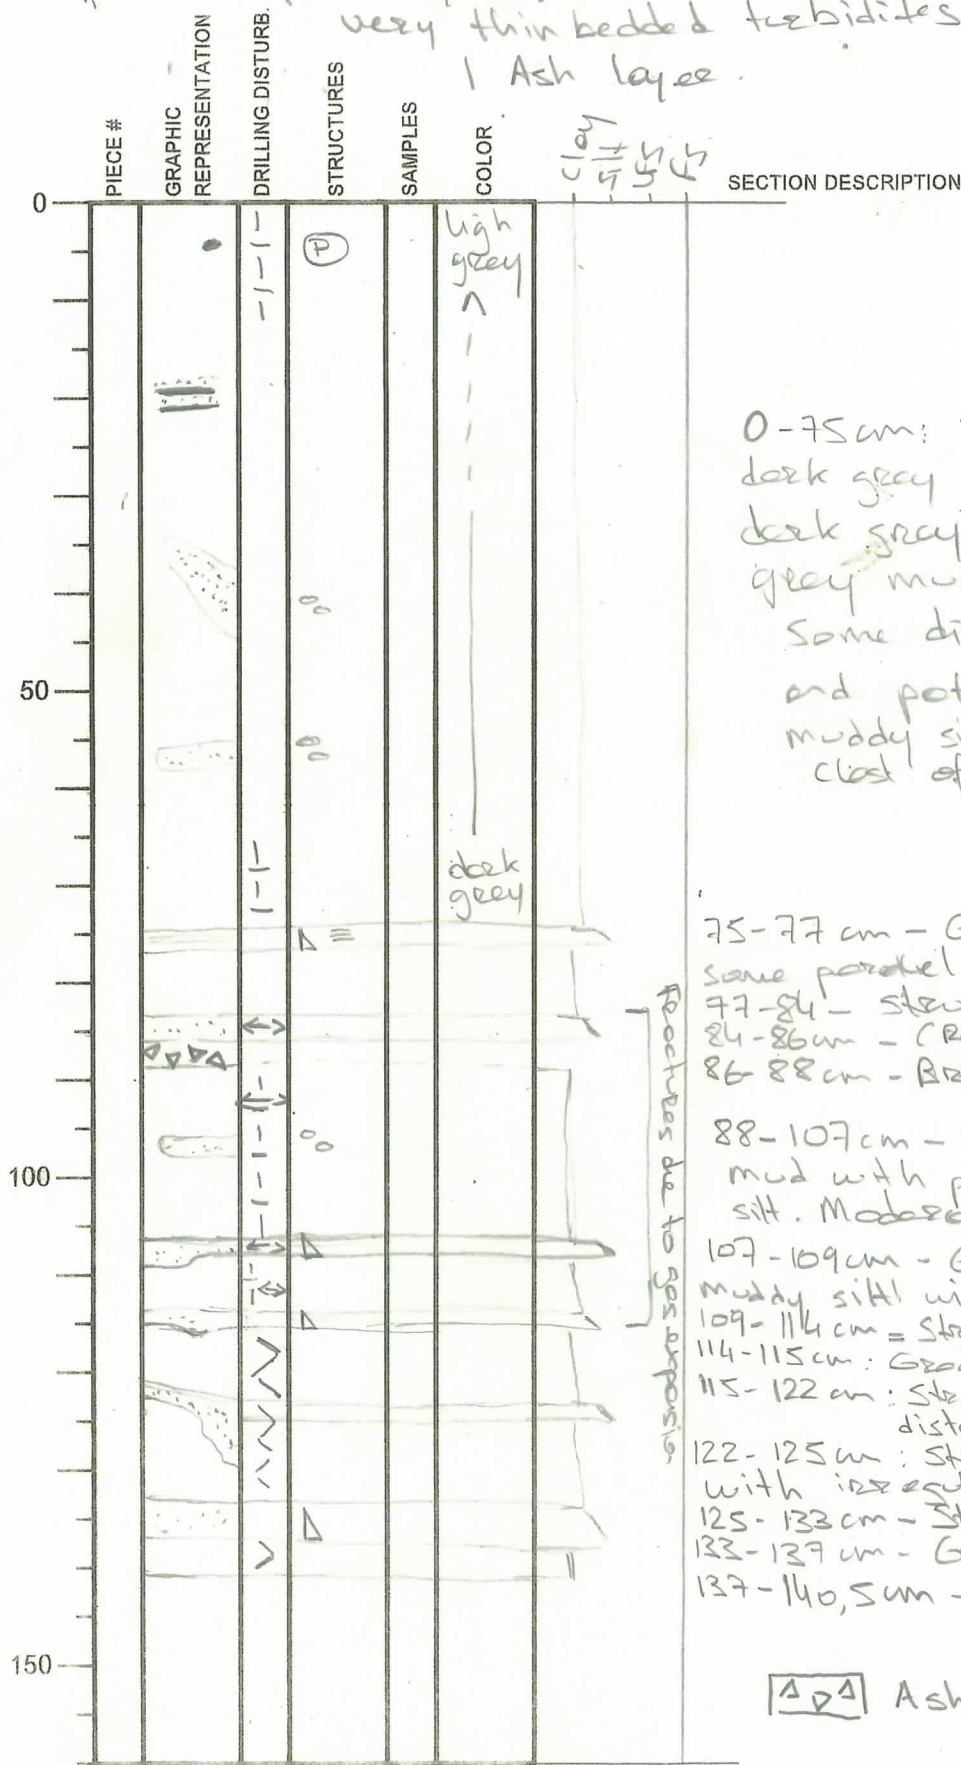 very thin bedded turbidites
1 Ash layer.
PIECE #
GRAPHIC
REPRESENTATION
DRILLING DISTURB.
STRUCTURES
SAMPLES
COLOR
clay
silt
SECTION DESCRIPTION
0
50
100
150
P
ligh
grey
dark
grey
Fractures due to gas expansio
0-75cm:
dark gray
dark gray
grey mu
Some di
and pot
muddy si
Clast of
75-77 cm - G
some parallel
77-84 - stru
84-86cm - (R
86-88cm - Br
88-107cm -
mud with p
silt. Modera
107-109cm - G
muddy silt wi
109-114 cm = Str
114-115cm: Grad
115-122 cm: Str
dist
122-125cm: St
with irregu
125-133cm - St
133-137 cm - G
137-140,5cm -
Ash